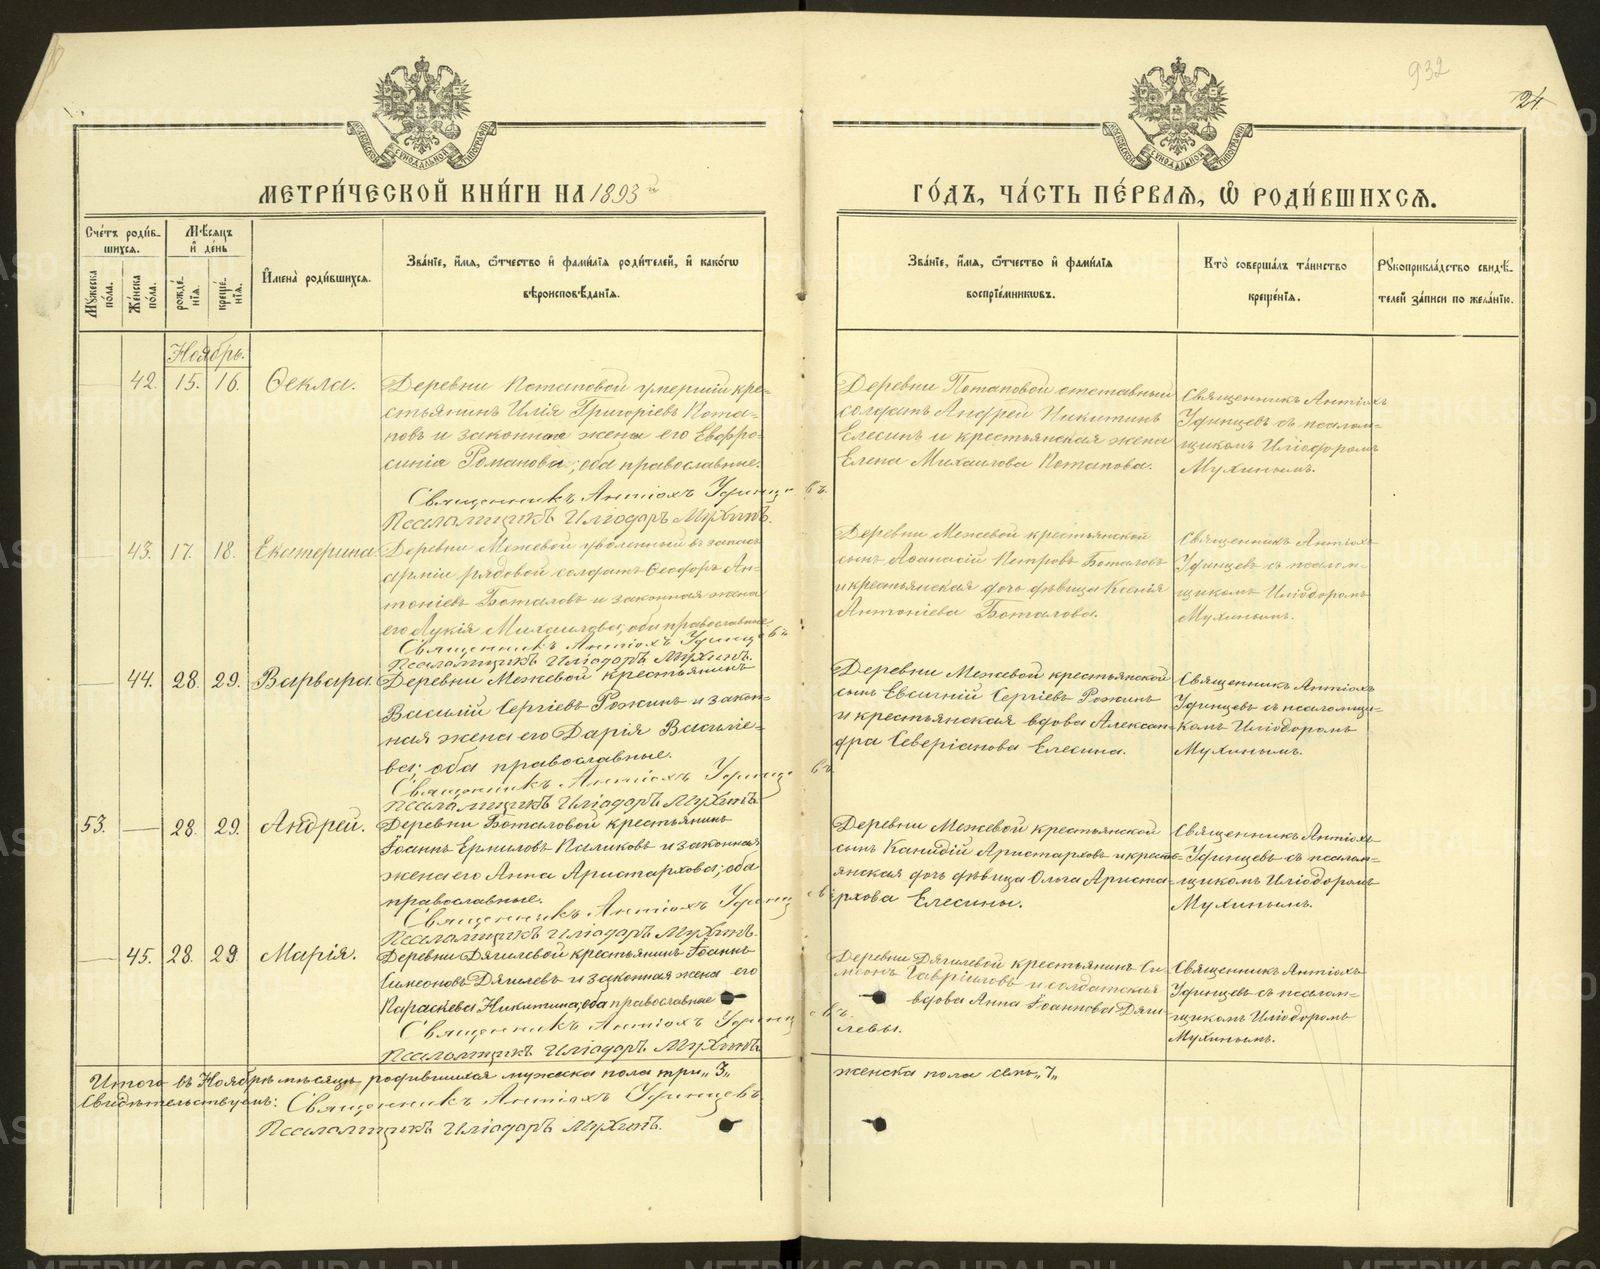 932
24
МОСКОВСКОЙ СѴНОДАЛЬНОЙ ТИПОГРАФІИ
МОСКОВСКОЙ СѴНОДАЛЬНОЙ ТИПОГРАФІИ
МЕТРИ́ЧЕСКОЙ КНИ́ГИ НА 1893й
ГО́ДЪ, ЧА́СТЬ ПЕ́РВАѦ, Ѿ РОДИ́ВШИХСѦ.
Сче́тъ роди́в-
шихсѧ.
Мѹ́жеска по́ла.
Же́нска по́ла.
Мѣ́сѧцъ
и҆ де́нь
рожде́нїѧ.
креще́нїѧ.
И҆мена̀ роди́вшихсѧ.
Зва́нїе, и҆́мѧ, ѻ҆́тчество и҆ фами́лїѧ роди́телей, и҆ како́гѡ
вѣроисповѣ́данїѧ.
Зва́нїе, и҆́мѧ, ѻ҆́тчество и҆ фами́лїѧ
воспрїе́мникѡвъ.
Кто̀ соверша́лъ та́инство
креще́нїѧ.
Рѹкоприкла́дство свидѣ́-
телей за́писи по жела́нїю.
Ноябрь.
42. 15. 16. Ѳекла.
Деревни Потаповой умершій кре-
стьянинъ Илія Григоріевъ Пота-
повъ и законная жена его Евфро-
синія Романова; оба православные.
Священникъ Антіохъ Удинцевъ.
Псаломщикъ Иліодоръ Мухинъ.
Деревни Потаповой отставный
солдатъ Андрей Никитинъ
Елесинъ и крестьянская жена
Елена Михаилова Потапова.
Священникъ Антіохъ
Удинцевъ съ псалом-
щикомъ Иліодоромъ
Мухинымъ.
43. 17. 18. Екатерина
Деревни Межевой уволенный въ запасъ
арміи рядовой солдатъ Ѳеодоръ Ан-
тоніевъ Боталовъ и законная жена
его Лукія Михаилова; оба православные
Священникъ Антіохъ Удинцевъ
Псаломщикъ Иліодоръ Мухинъ.
Деревни Межевой крестьянской
сынъ Аѳанасій Петровъ Боталовъ
и крестьянская дочь дѣвица Ксенія
Антоніева Боталова.
Священникъ Антіохъ
Удинцевъ съ псалом-
щикомъ Иліодоромъ
Мухинымъ.
44. 28. 29. Варвара.
Деревни Межевой крестьянинъ
Василій Сергіевъ Рожинъ и закон-
ная жена его Дарія Василіе-
ва; оба православные.
Священникъ Антіохъ Удинцевъ
Псаломщикъ Иліодоръ Мухинъ
Деревни Межевой крестьянской
сынъ Евсигній Сергіевъ Рожинъ
и крестьянская вдова Алексан-
дра Северіанова Елесина.
Священникъ Антіохъ
Удинцевъ съ псаломщи-
комъ Иліодоромъ
Мухинымъ.
53. 28. 29. Андрей.
Деревни Боталовой крестьянинъ
Іоаннъ Ермиловъ Паликовъ и законная
жена его Анна Аристархова; оба
православные.
Священникъ Антіохъ Удинцевъ
Псаломщикъ Иліодоръ Мухинъ.
Деревни Межевой крестьянской
сынъ Канидій Аристарховъ и кресть-
янская дочь дѣвица Ольга Ариста-
рхова Елесины.
Священникъ Антіохъ
Удинцевъ съ псалом-
щикомъ Иліодоромъ
Мухинымъ.
45. 28. 29 Марія.
Деревни Дягилевой крестьянинъ Іоаннъ
Симеоновъ Дягилевъ и законная жена его
Параскева Никитина; оба православные
Священникъ Антіохъ Удинцевъ
Псаломщикъ Иліодоръ Мухинъ
Деревни Дягилевой крестьянинъ Си-
меонъ Гавріиловъ и солдатская
вдова Анна Іоаннова Дяги-
левы.
Священникъ Антіохъ
Удинцевъ съ псалом-
щикомъ Иліодоромъ
Мухинымъ.
Итого въ Ноябрѣ мѣсяцѣ родившихся мужеска пола три „3„
женска пола семь „7„
Свидѣтельствуемъ: Священникъ Антіохъ Удинцевъ.
Псаломщикъ Иліодоръ Мухинъ.